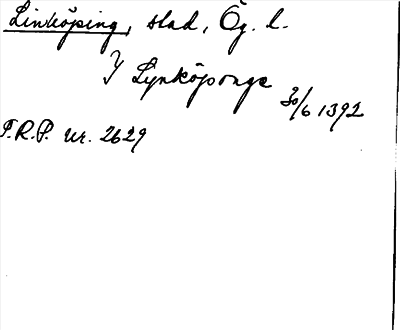 Linköping, stad, Ög. l.
J Lynköponge 30/6 1392
P.R.P. nr. 2629